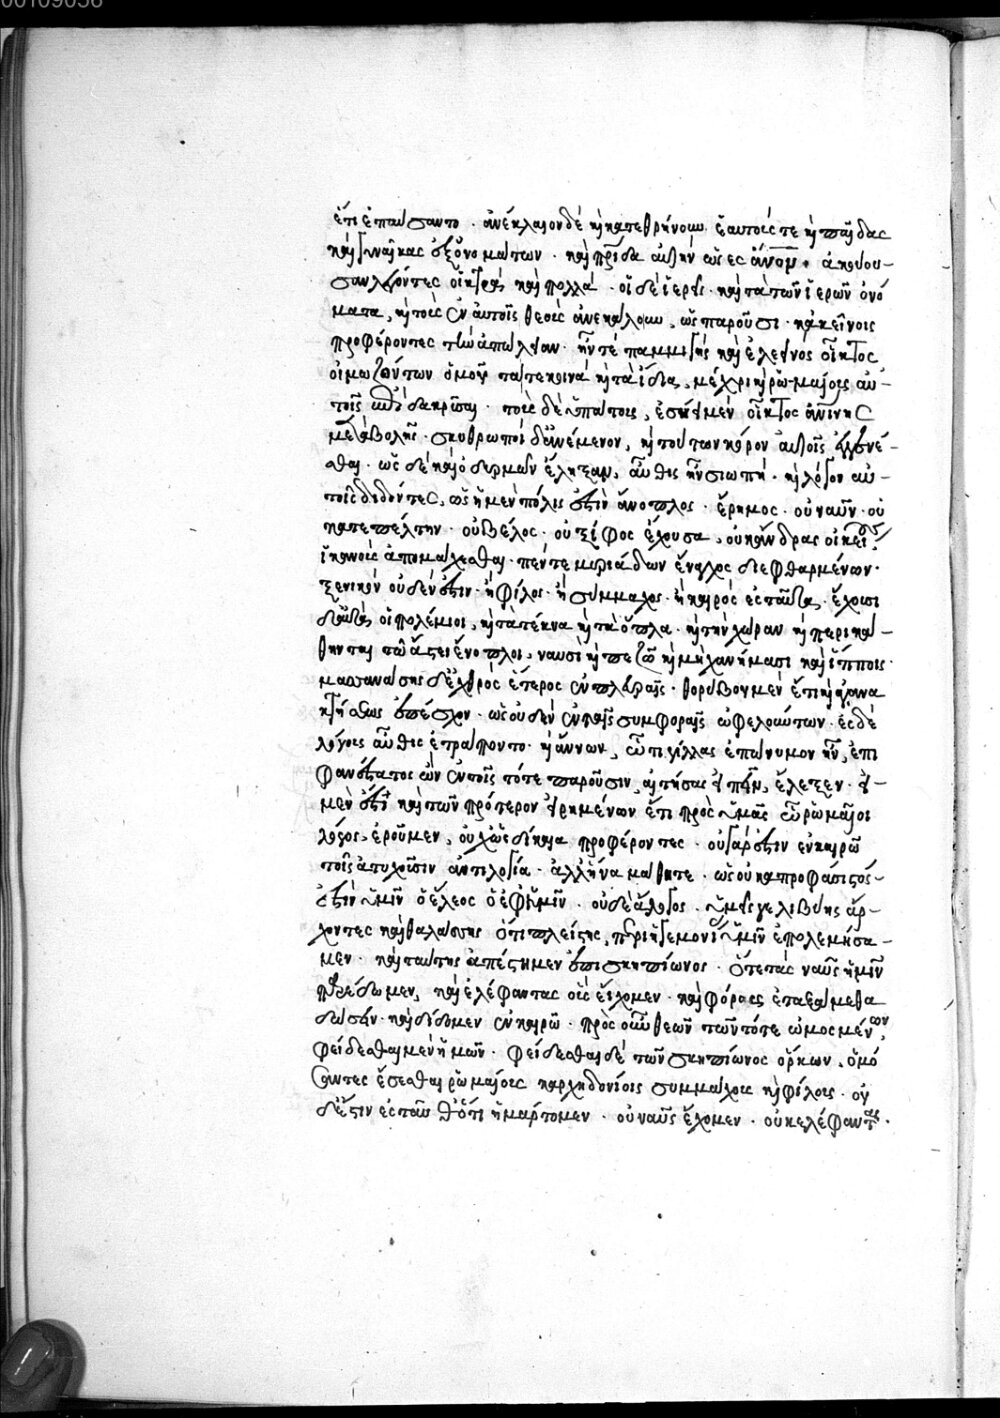 00109056
ἔτι ἐπαύσαντο. ἀνέκλαιον δὲ καὶ κατεθρήνουν ἑαυτούς τε καὶ παῖδας
καὶ γυναῖκας ἐξ ὀνομάτων. καὶ πατρίδα αὐτὴν ὡς ἐς ἄνον. ἀκούου-
σαν λέγοντες οἰκτρὰ καὶ πολλά. οἱ δὲ ἱερεῖς καὶ τὰ τῶν ἱερῶν ὀνό
ματα, καὶ τοὺς ἐν αὐτοῖς θεοὺς ἀνεκάλουν, ὡς παροῦσι. κἀκείνοις
προφέροντες τὴν ἀπώλειαν. ἦν τε παμμιγὴς καὶ ἐλεεινὸς οἶκτος
οἰμωζόντων ὁμοῦ τά τε κοινὰ καὶ τὰ ἴδια, μέχρι καὶ ῥωμαίοις αὐ-
τοῖς ἐπιδακρῦσαι. τοὺς δὲ ὑπάτους, ἐσῄει μὲν οἶκτος ἀνθρωπίνης
μεταβολῆς. σκυθρωποὶ δ' ἀνέμενον, καὶ τούτων κόρον αὐτοῖς ἐγγενέ-
σθαι. ὡς δὲ καὶ ὀδυρμῶν ἔληξαν, αὖθις ἦν σιωπή. καὶ λόγον αὑ-
τοῖς διδόντες, ὡς ἡ μὲν πόλις ἐστὶν ἄνοπλος. ἔρημος. οὐ ναῦν. οὐ
καταπέλτην. οὐ βέλος. οὐ ξίφος ἔχουσα, οὐκ ἄνδρας οἰκείους
ἱκανοὺς ἀπομάχεσθαι. πέντε μυριάδων ἔναγχος διεφθαρμένων.
ξενικὸν οὐδέν ἐστιν. ἢ φίλος. ἢ σύμμαχος. ἢ καιρὸς ἐς ταῦτα. ἔχουσι
δ' αὐτῶν οἱ πολέμιοι, καὶ τὰ τέκνα καὶ τὰ ὅπλα. καὶ τὴν χώραν καὶ περικά-
θηνται τῷ ἄστει ἔνοπλοι, ναυσὶ καὶ πεζῷ καὶ μηχανήμασι καὶ ἵπποις.
μασσανάσσης δ' ἐχθρὸς ἕτερος ἐν πλευραῖς. θορύβου μὲν ἔτι καὶ ἀγανα
κτήσεως ἐπέσχον. ὡς οὐδὲν ἐν ταῖς συμφοραῖς ὠφελούντων. ἐς δὲ
λόγους αὖθις ἐτράποντο. καὶ ἄννων, ᾧ τιγίλλας ἐπώνυμον ἦν, ἐπι
φανέστατος ὢν ἐν τοῖς τότε παροῦσιν, αἰτήσας εἰπεῖν, ἔλεξεν. εἰ
μέν ἐστι καὶ τῶν πρότερον εἰρημένων ἔτι πρὸς ὑμᾶς ὦ ῥωμαῖοι
λόγος, ἐροῦμεν, οὐχ ὡς δίκαια προφέροντες. οὐ γάρ ἐστιν ἐν καιρῷ
τοῖς ἀτυχοῦσιν ἀντιλογία. ἀλλ' ἵνα μάθητε. ὡς οὐκ ἀπροφάσιστός
ἐστιν ὑμῖν ὁ ἔλεος ὁ ἐφ' ἡμῖν. οὐδὲ ἄλογος. ἡμεῖς γε λιβύης ἄρ-
χοντες καὶ θαλάσσης ὅτι πλείστης, περὶ ἡγεμονίας ὑμῖν ἐπολεμήσα-
μεν. καὶ ταύτης ἀπέστημεν ἐπὶ σκηπίωνος. ὅτε τὰς ναῦς ὑμῖν
παρέδομεν, καὶ ἐλέφαντας οὓς εἴχομεν. καὶ φόρους ἐταξάμεθα
δώσειν. καὶ δίδομεν ἐν καιρῷ. πρὸς οὖν θεῶν τῶν τότε ὠμοσμένων,
φείδεσθαι μὲν ἡμῶν. φείδεσθαι δὲ τῶν σκηπίωνος ὅρκων, ὀμό
σαντος ἔσεσθαι ῥωμαίους καρχηδονίοις συμμάχους καὶ φίλους. οὐ
δ' ἔστιν ἐς ταῦθ' ὅτι ἡμάρτομεν. οὐ ναῦς ἔχομεν. οὐκ ἐλέφαντας.